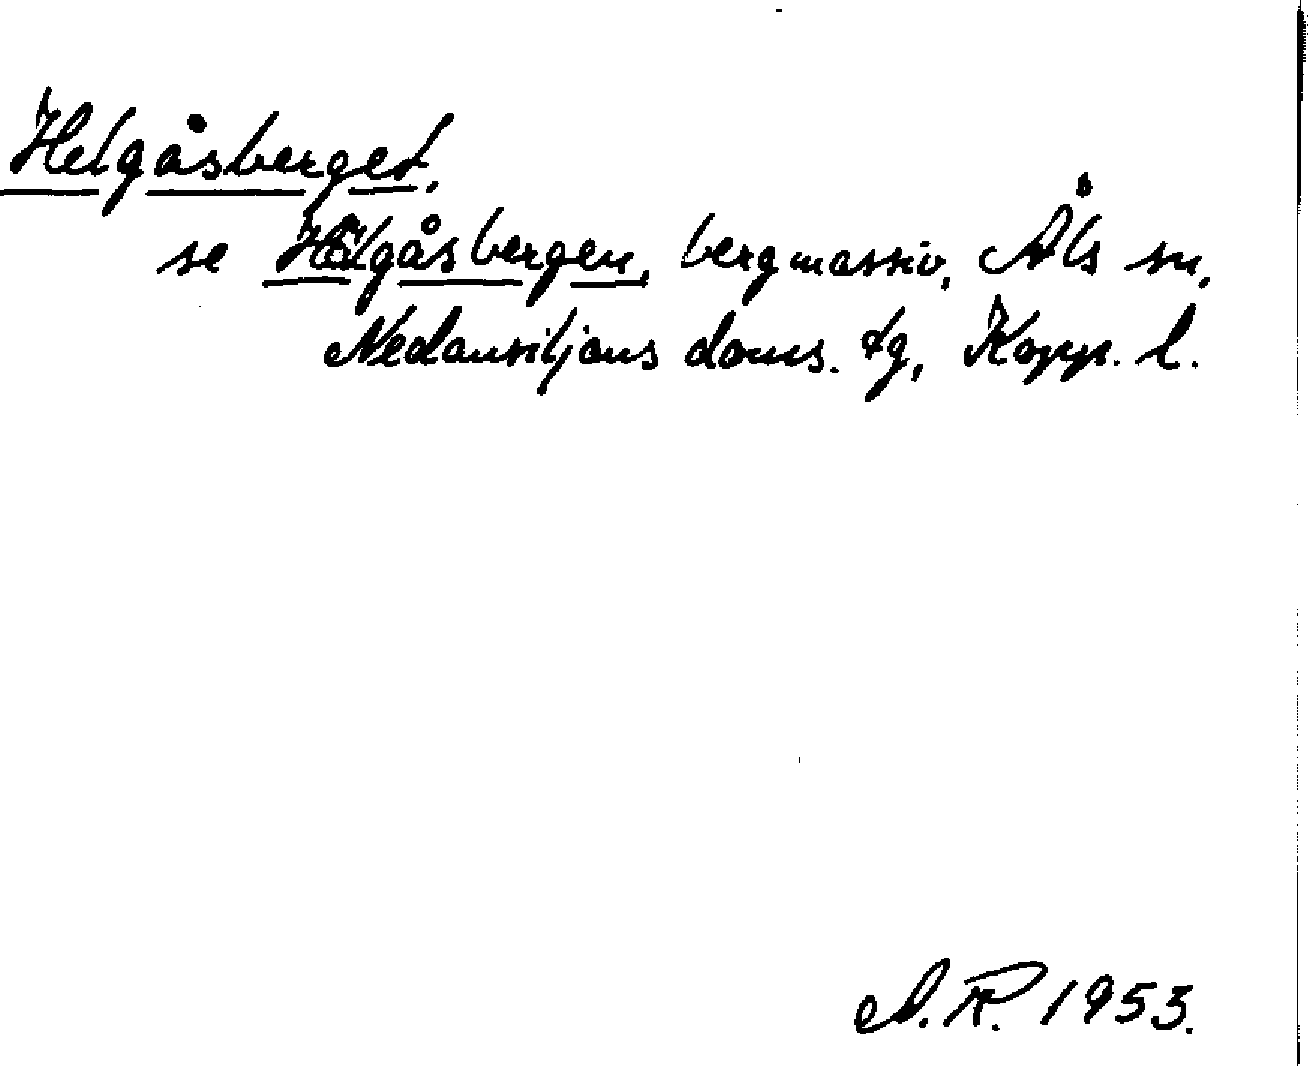 Helgåsberget,
se Hälgåsbergen, bergmassiv, Åls sn,
Nedansiljans doms. tg, Kopp. l.
A.R. 1953.